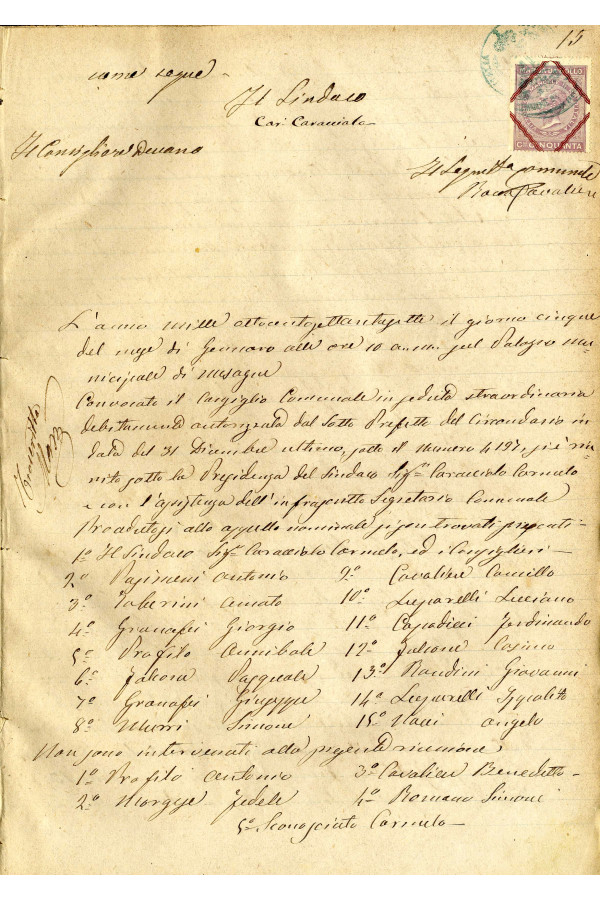 13
come segue
Il Sindaco
Car: Caracciolo
Il Consigliere Deuano
Il Segret.° Comunale
Rocco Cavaliere
CENT. CINQUANTA
L'anno mille ottocentosettantasette il giorno cinque
del mese di Gennaro alle ore 10 a.m. sul Palazzo Mu-
nicipale di Mesagne
Convocato il Consiglio Comunale in seduta straordinaria
debitamente autorizzata dal Sotto Prefetto del Circondario in
data del 31 Dicembre ultimo, sotto il numero 4197, si è riu-
nito sotto la Presidenza del Sindaco Sig.r Caracciolo Carmelo
e con l'assistenza dell'infrascritto Segretario Comunale
Procedutosi allo appello nominale si son trovati presenti -
1° Il Sindaco Sig.r Caracciolo Carmelo, ed i Consiglieri -
2° Pasimeni Antonio 9° Cavaliere Camillo
3° Taberini Amato 10° Luparelli Luciano
4° Granafei Giorgio 11° Capodieci Ferdinando
5° Profilo Annibale 12° Falcone Cosimo
6° Falcone Pasquale 13° Rondini Giovanni
7° Granafei Giuseppe 14° Luparelli Ippolito
8° Murri Simone 15° Nacci Angelo
Non sono intervenuti alla presente riunione
1° Profilo Antonio 3° Cavaliere Benedetto -
2° Morgese Fedele 4° Romano Simone
5° Sconosciuto Carmelo -